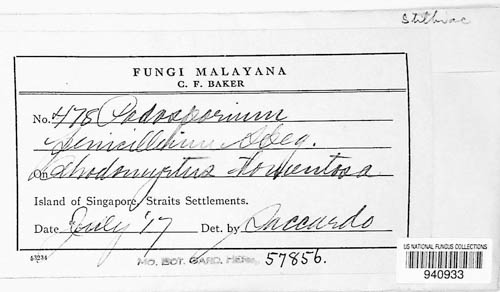 Stilbac
FUNGI MALAYANA
C. F. BAKER
No. 478 Podosporium
penicillium Speg.
On Rhodomyrtus tomentosa
Island of Singapore, Straits Settlements.
Date July '17 Det. by Saccardo
63234
MO. BOT. GARD. HERB. 57856.
US NATIONAL FUNGUS COLLECTIONS
940933